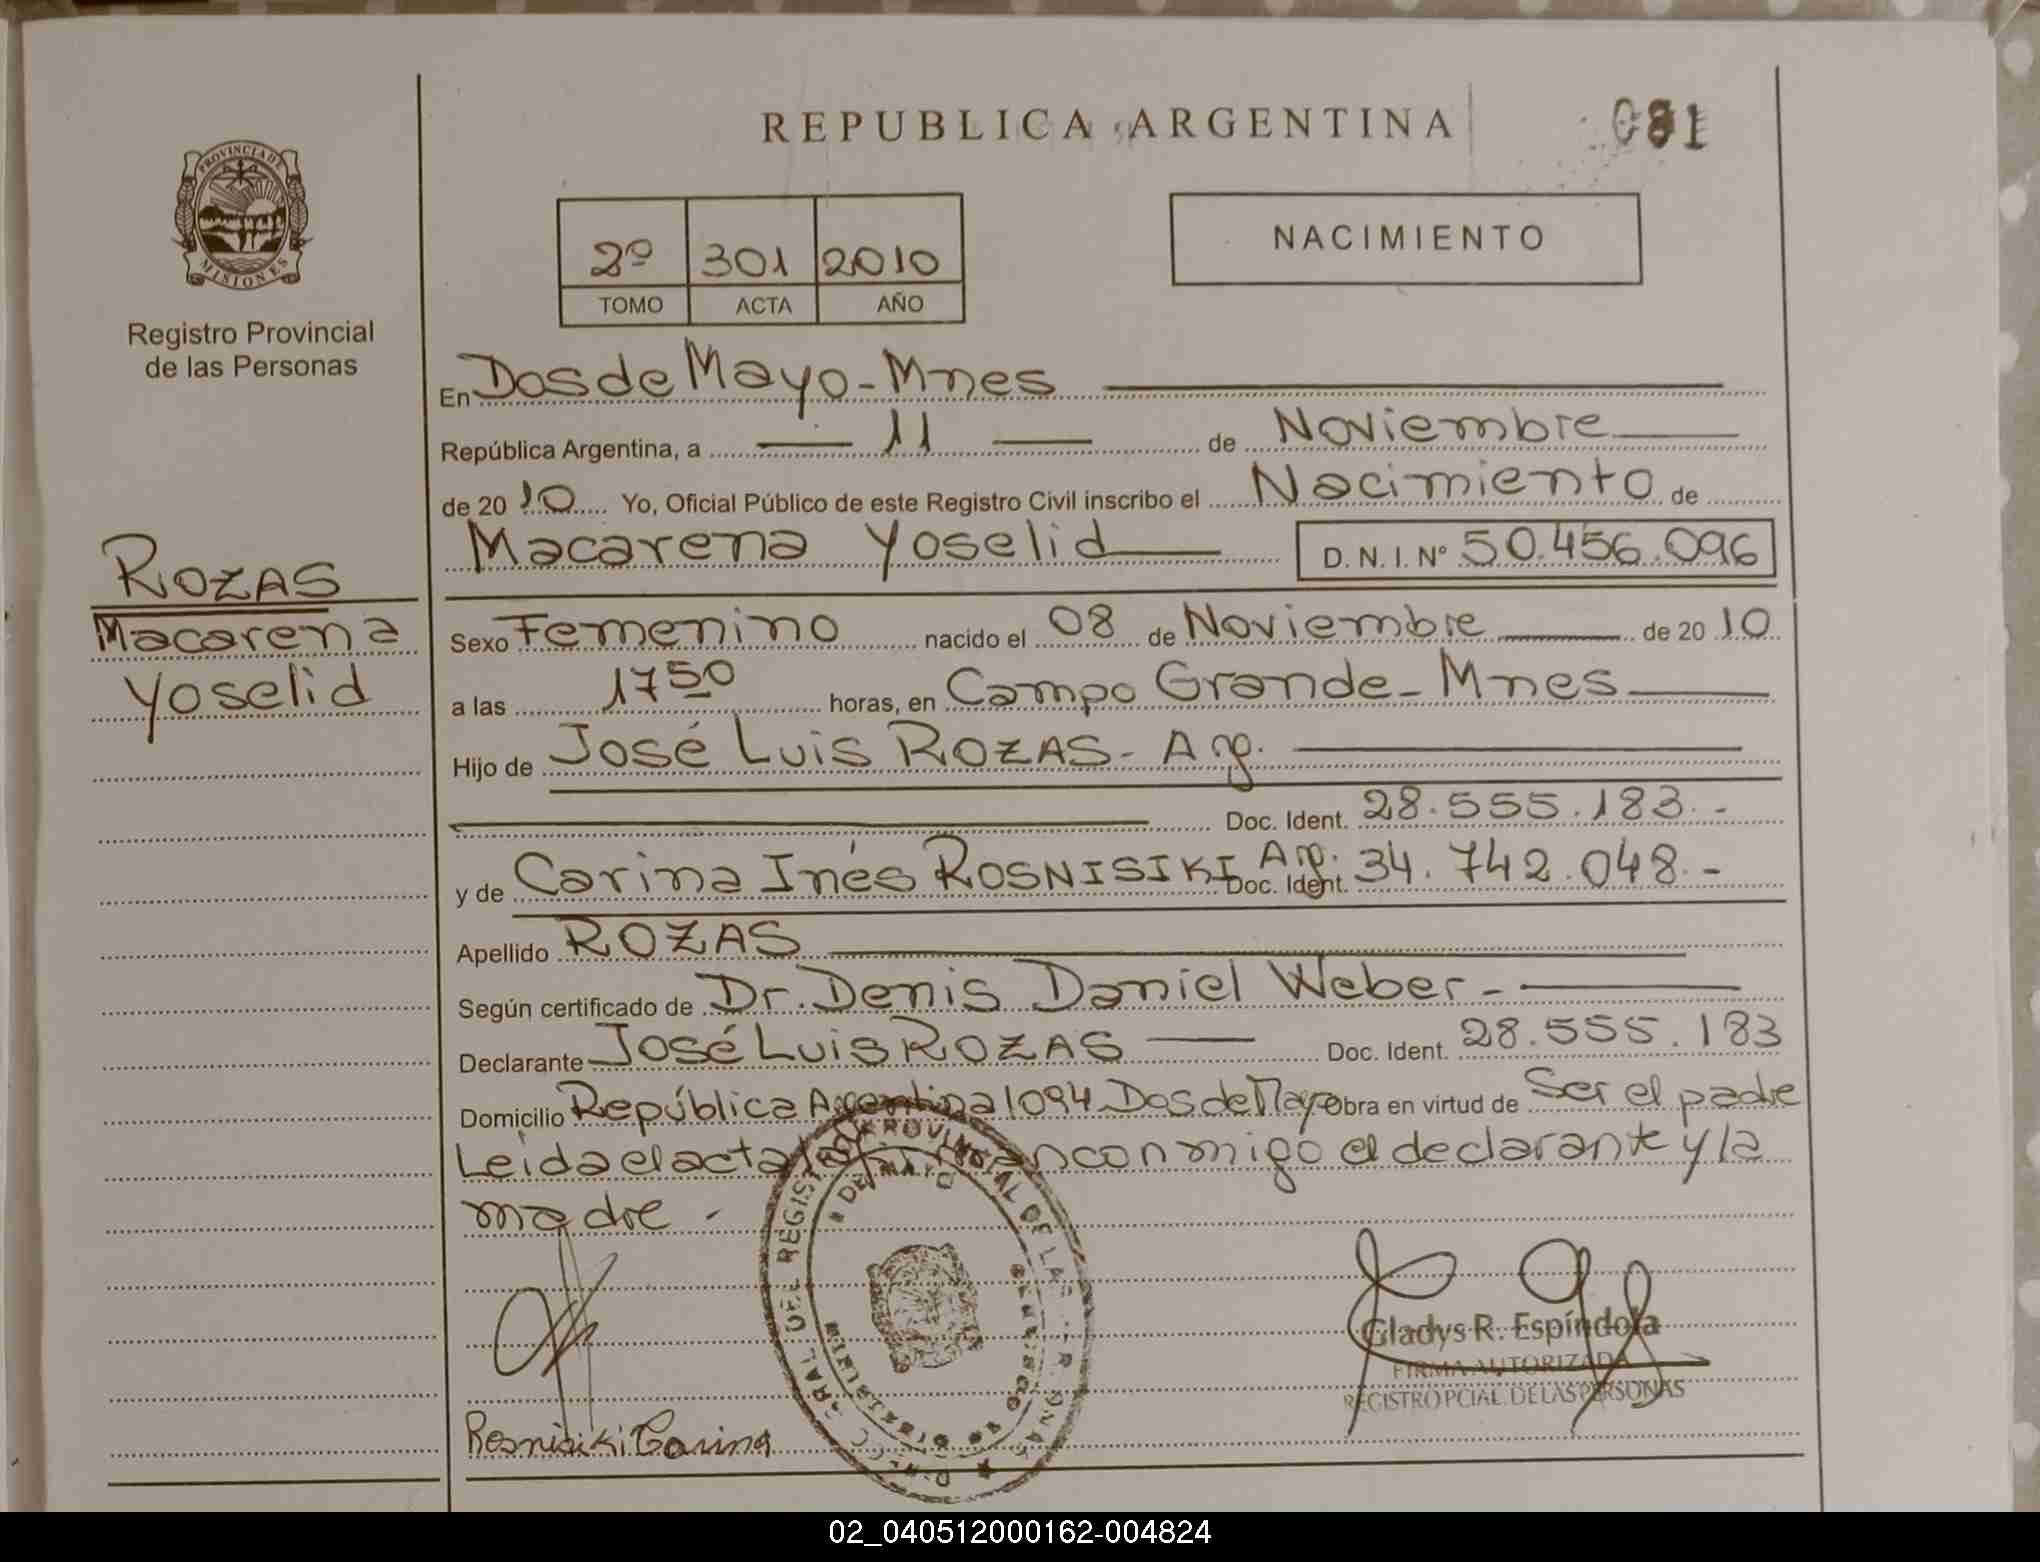 REPUBLICA ARGENTINA
081
PROVINCIA DE
MISIONES
Registro Provincial
de las Personas
2º 301 2010
TOMO ACTA AÑO
NACIMIENTO
En Dos de Mayo - Mnes
República Argentina, a 11 de Noviembre
de 20 10 Yo, Oficial Público de este Registro Civil inscribo el Nacimiento de
Macarena Yoselid D. N. I. Nº 50.456.096
ROZAS
Macarena
Yoselid
Sexo Femenino nacido el 08 de Noviembre de 20 10
a las 17 50 horas, en Campo Grande - Mnes
Hijo de José Luis ROZAS - Arg.
Doc. Ident. 28.555.183.-
y de Carina Inés ROSNISIKI Arg. Doc. Ident. 34.742.048.-
Apellido ROZAS
Según certificado de Dr. Denis Daniel Weber -
Declarante José Luis ROZAS Doc. Ident. 28.555.183
Domicilio República Argentina 1094 Dos de Mayo Obra en virtud de Ser el padre
Leida el acta conmigo el declarante y la
madre -
DEL REGISTRO PROVINCIAL DE LAS
II DE MAYO
MISIONES
Gladys R. Espíndola
FIRMA AUTORIZADA
REGISTRO PCIAL. DE LAS PERSONAS
Rosnisiki Carina
02_040512000162-004824